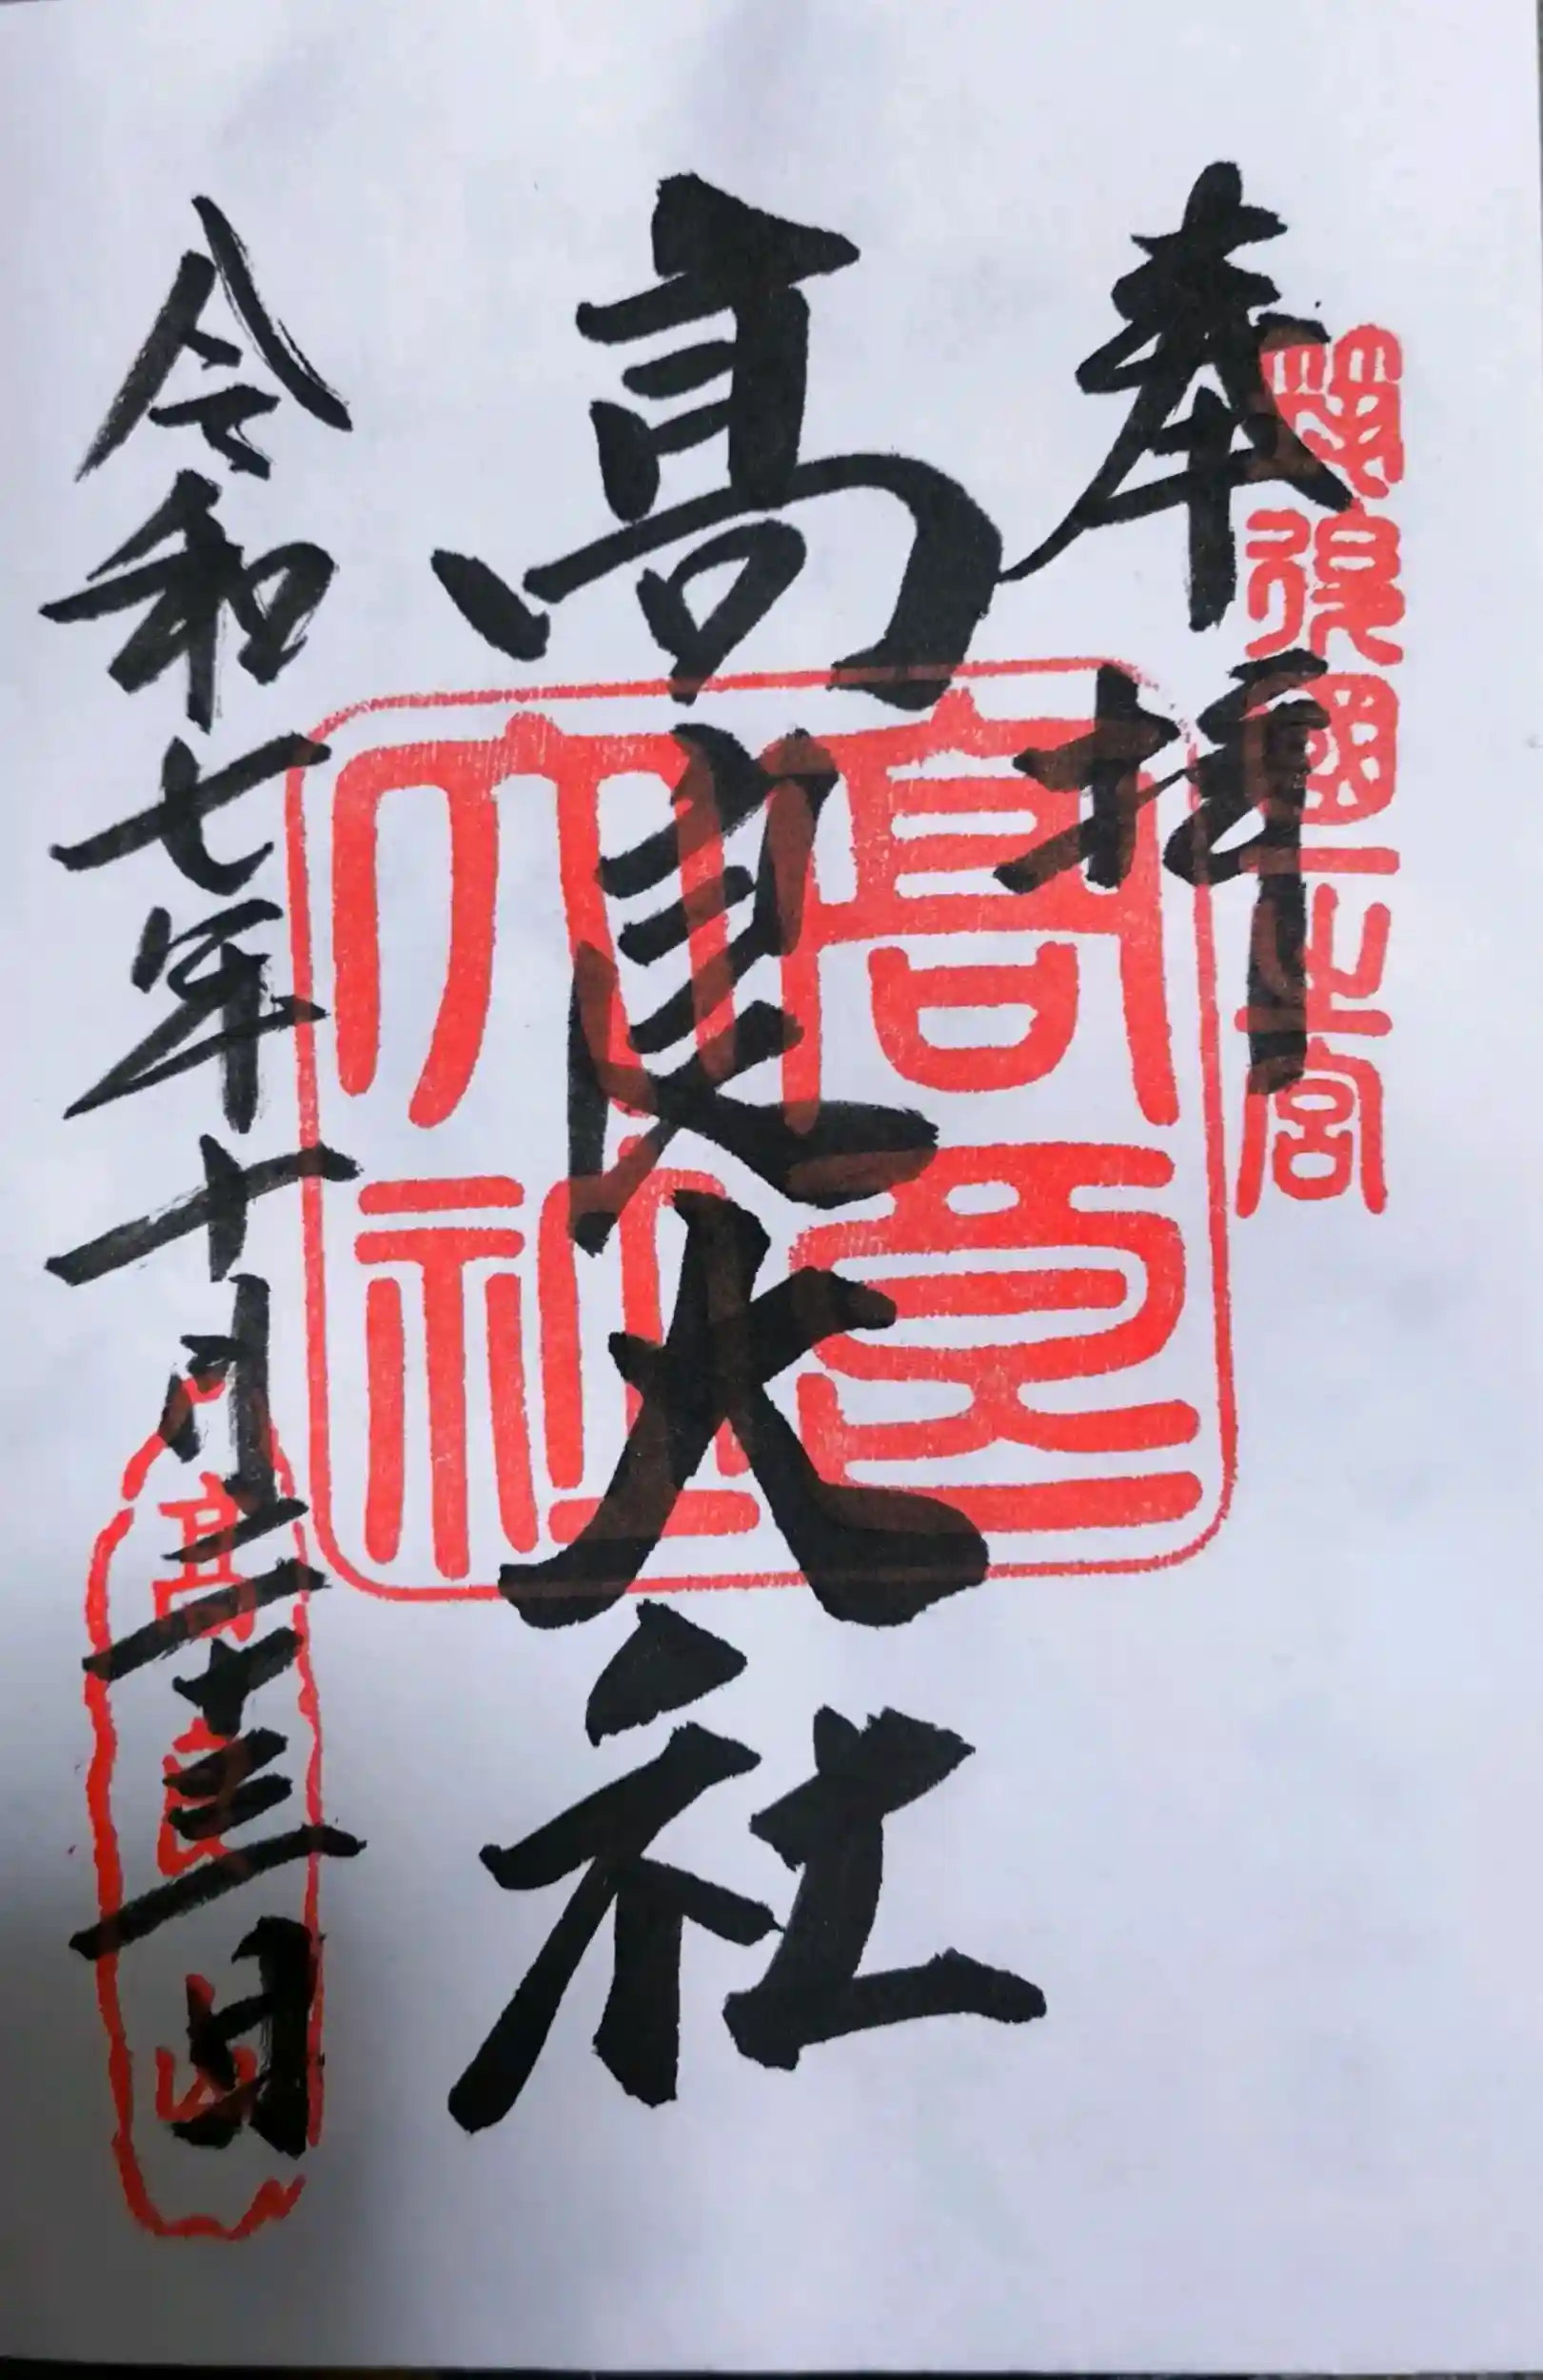 奉拝
筑後國一之宮
高良大社
高良大社
令和七年十月二十三日
高良山